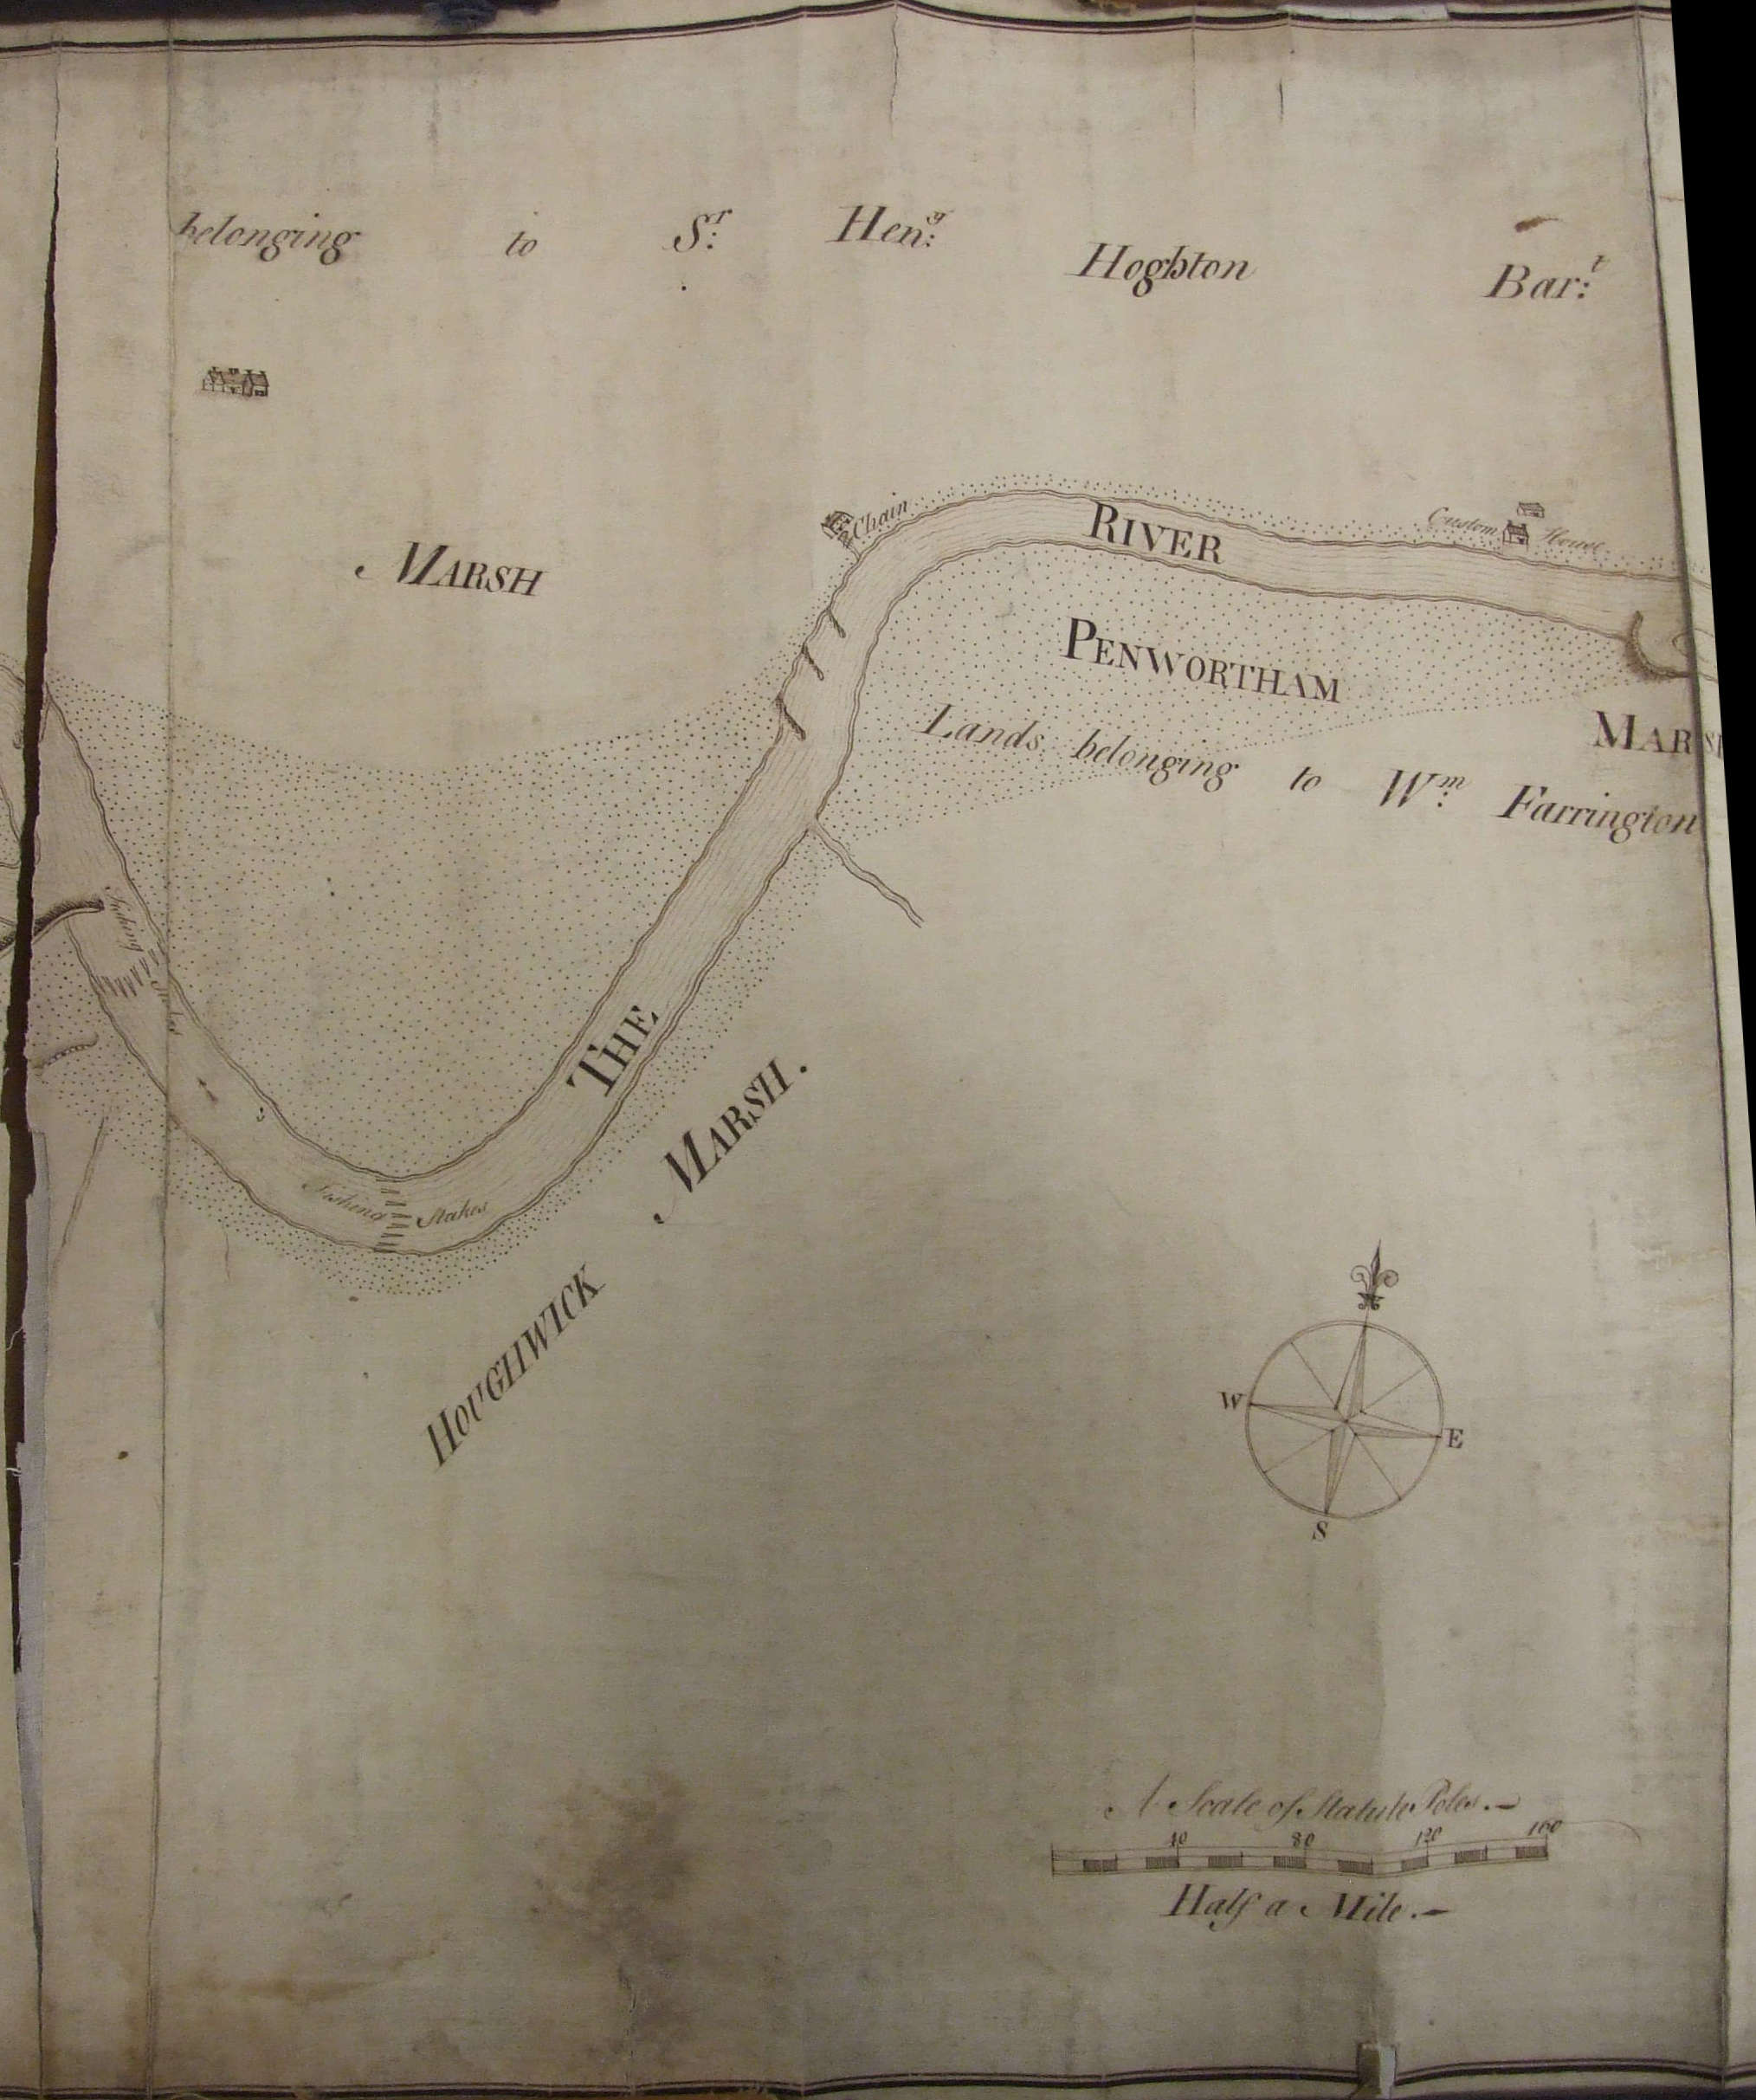 belonging to Sr: Heny: Hoghton Bar:t
Chain
Custom House
RIVER
MARSH
PENWORTHAM
MARSH
Lands belonging to Wm: Farrington
Fishing Stakes
THE
MARSH.
Fishing Stakes
HOUGHWICK
W
E
S
A Scale of Statute Poles.—
40 80 120 160
Half a Mile.—